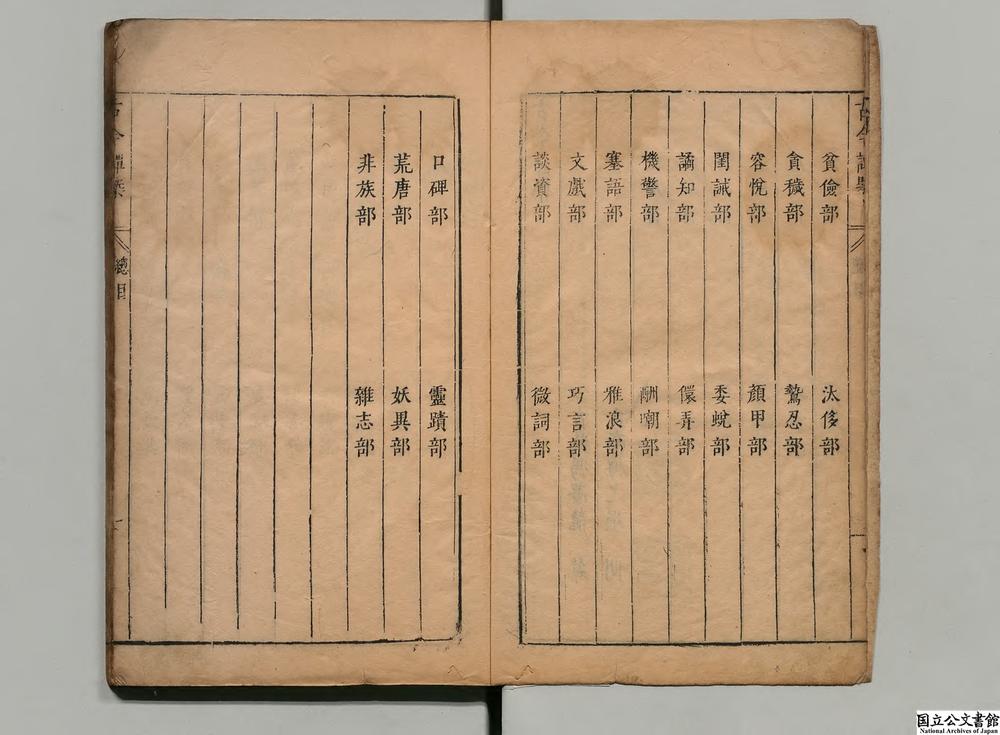 貧儉部 汰侈部
貪穢部 鷙忍部
容悅部 顏甲部
閨誡部 委蛻部
譎知部 儇弄部
機警部 酬嘲部
塞語部 雅浪部
文戲部 巧言部
談資部 微詞部
口碑部 靈蹟部
荒唐部 妖異部
非族部 雜志部
古今譚槩 總目 一
国立公文書館
National Archives of Japan